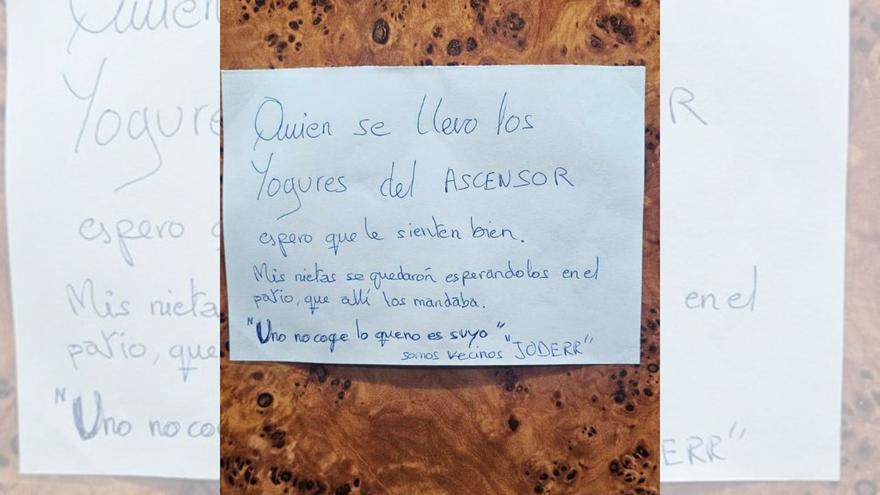 Quien se llevo los
Yogures del ASCENSOR
espero que le sienten bien.
Mis nietas se quedarón esperandolos en el
patio, que allí los mandaba.
"Uno no coge lo que no es suyo"
somos vecinos "JODERR"